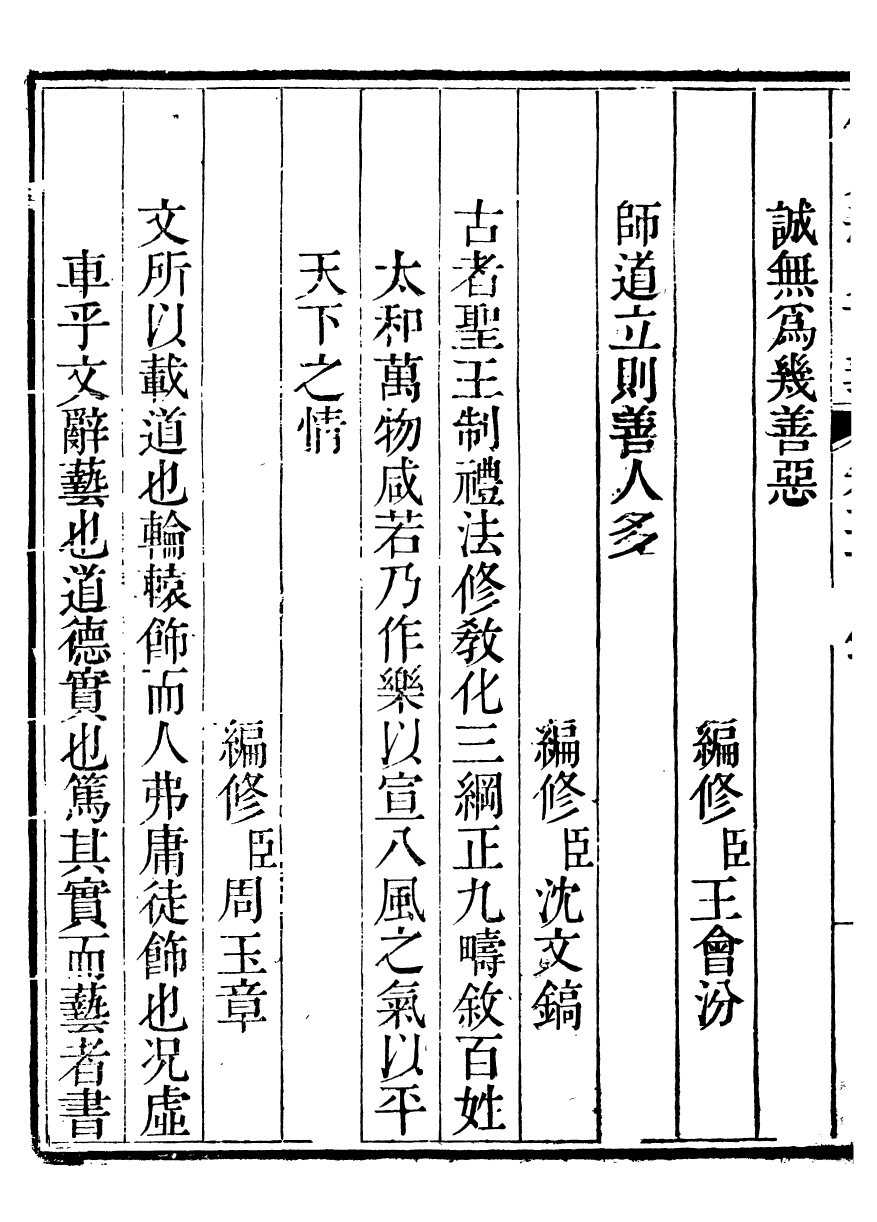 誠無爲幾善惡
編修臣王會汾
師道立則善人多
編修臣沈文鎬
古者聖王制禮法修教化三綱正九疇敘百姓
太和萬物咸若乃作樂以宣八風之氣以平
天下之情
編修臣周玉章
文所以載道也輪轅飾而人弗庸徒飾也况虛
車乎文辭藝也道德實也篤其實而藝者書